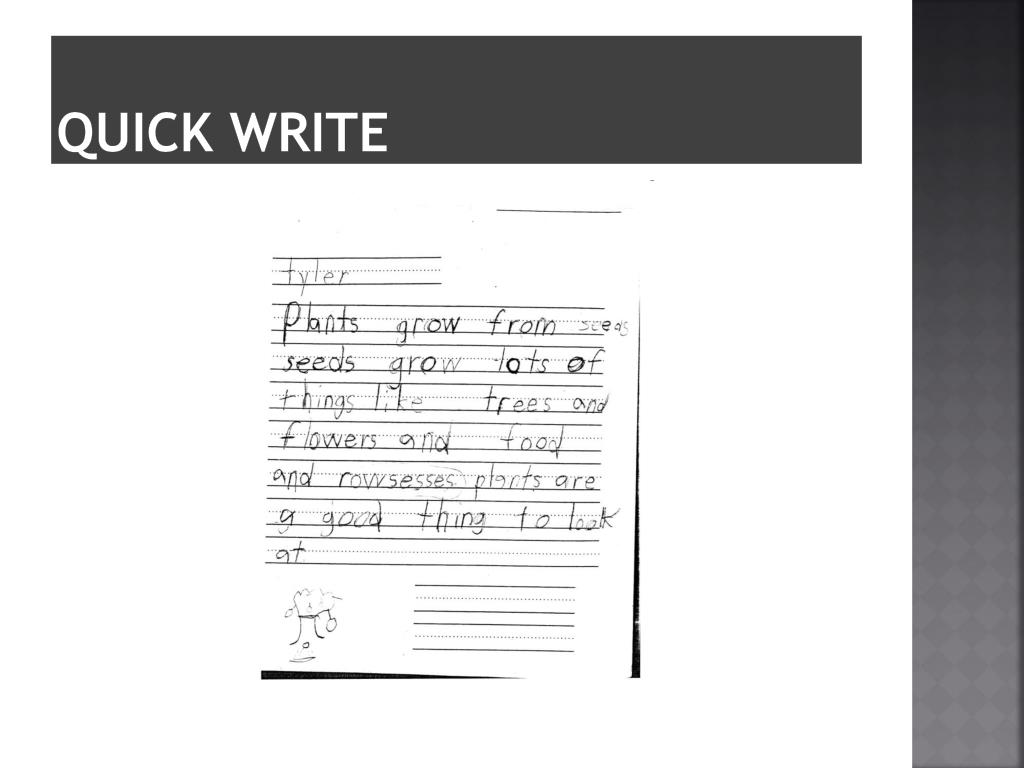 QUICK WRITE
tyler
Plants grow from seeds
seeds grow lots of
things like trees and
flowers and food
and rowsesses plants are
a good thing to look
at